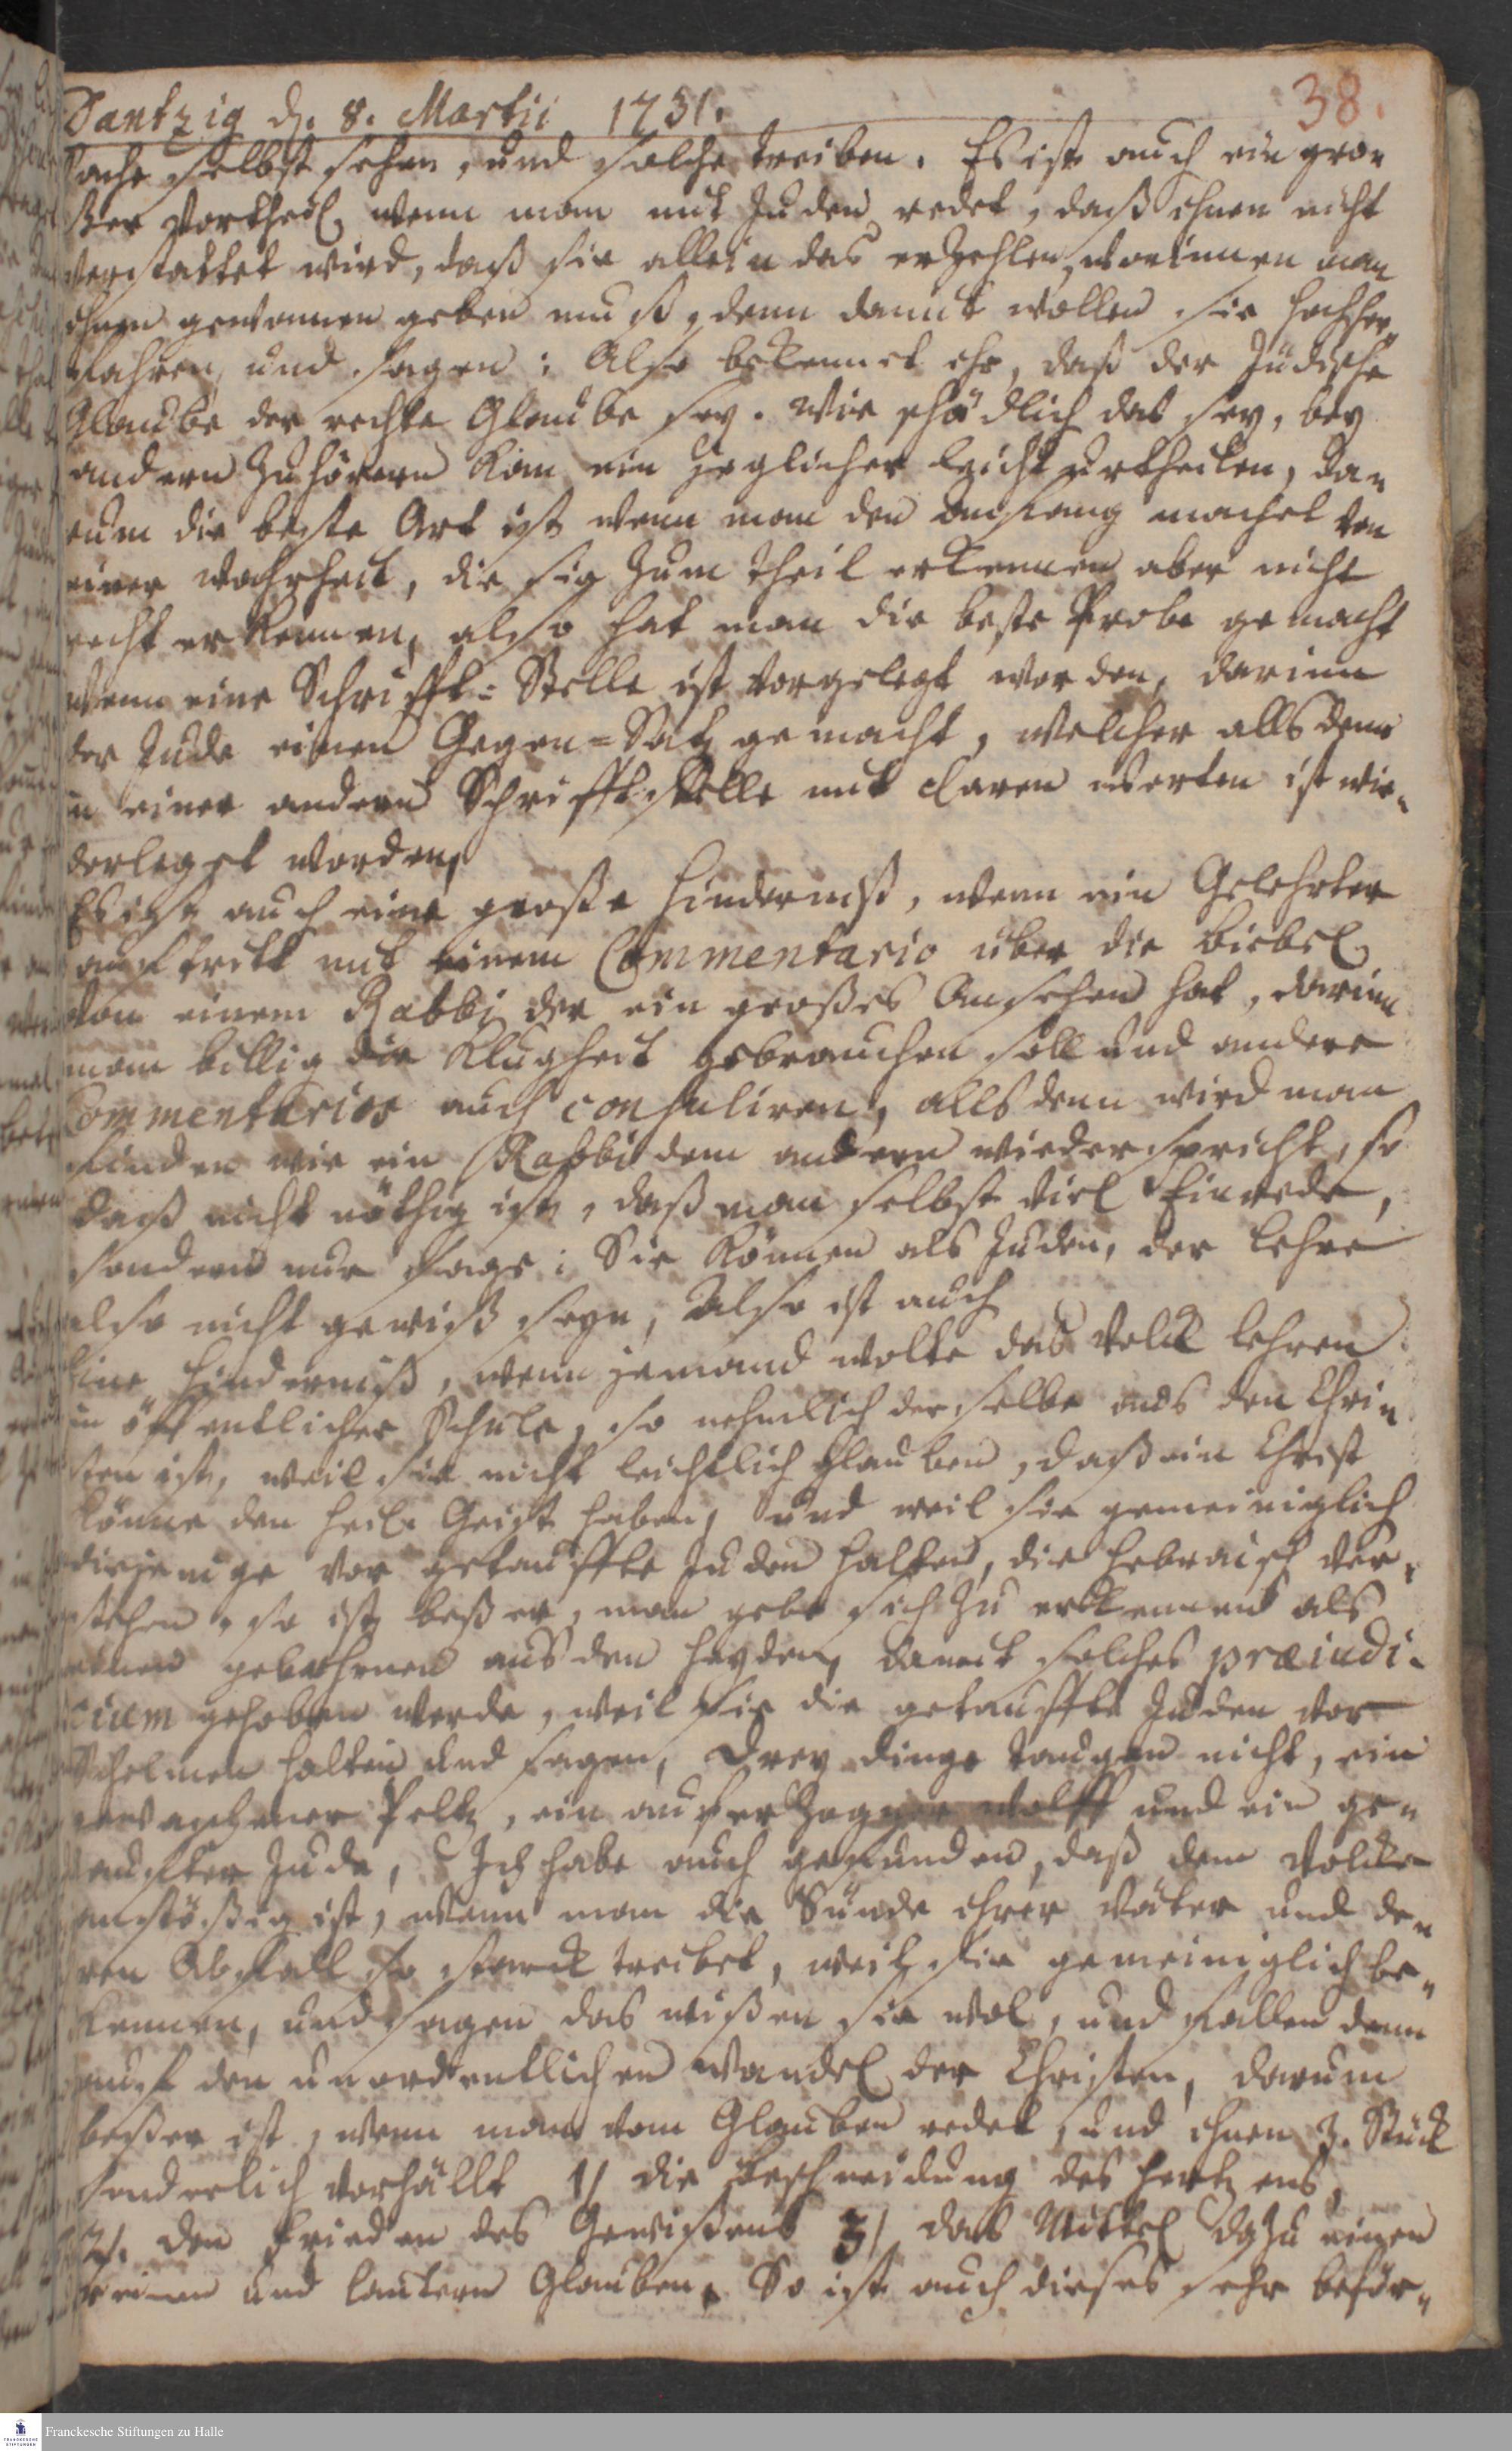 Dantzig d. 8. Martii 1731.
38.
Sache selbst sehen, und solche treiben. Es ist auch ein gro-
ßer Vortheil, wenn man mit Juden redet, daß ihnen nicht
verstattet wird, daß sie allein das erzehlen, worinnen man
ihnen gewonnen geben muß, denn damit wollen sie hochher
fahren, und sagen: Also bekennet ihr, daß der Jüdische
Glaube der rechte Glaube sey. Wie schädlich das sey, bey
andern Zuhörern kan ein jeglicher leicht urtheilen, da-
rum die beste Art ist, wenn man den Anfang machet von
einer Wahrheit, die sie zum theil erkennen aber nicht
recht erkennen, also hat man die beste Probe gemacht
wenn eine Schrifft-Stelle ist vorgelegt worden, darinn
der Jude einen Gegen-Satz gemacht, welcher alls denn
in einer andern Schrifft Stelle mit claren worten ist wie-
derleget worden,
Es ist auch eine große Hinderniß, wenn ein Gelehrter
aufftritt mit einem Commentario über die Biebel,
von einem Rabbi der ein großes Ansehen hat, darinn
man billig die Klugheit gebrauchen soll und andere
Commentarios auch consuliren, alls denn wird man
finden wie ein Rabbi dem andern wiederspricht, so
daß nicht nöthig ist, daß man selbst viel Einrede,
sondern nur sage: Sie können als Juden, der Lehre
also nicht gewiß seyn, Also ist auch
eine Hinderniß, wenn jemand wolte das Volck lehren
in öffentlicher Schule, so nehmlich derselbe aus den Chri-
sten ist, weil sie nicht leichtlich glauben, daß ein Christ
könne den Heil. Geist haben, und weil sie gemeiniglich
diejenige vor getauffte Juden halten, die Hebraisch ver-
stehen, so ist beßer, man gebe sich zu erkennen als
einen gebohrnen aus den Heyden, damit solches præiudi-
cium gehoben werde, weil sie die getauffte Juden vor
Schelmen halten und sagen, Drey dinge taugen nicht, ein
Peltz, ein auferzogner Wolff und ein ge-
tauffter Jude, Ich habe auch gefunden, daß dem Volcke
anstößig ist, wenn man die Sünde ihrer Väter und de-
ren Abfall so starck treibet, weil sie gemeiniglich be-
kennen, und sagen das wißen sie wol, und fallen denn
auf den unordentlichen Wandel der Christen, darum
beßer ist, wenn man vom Glauben redet, und ihnen 3. Stück
sonderlich vorhällt 1/ die Beschneidung des Hertzens,
2/. den Frieden des Gewißens 3/ das Mittel dazu einen
reinen und lautern Glauben, So ist auch dieses sehr beför-
Franckesche Stiftungen zu Halle
FRANCKESCHE
STIFTUNGEN